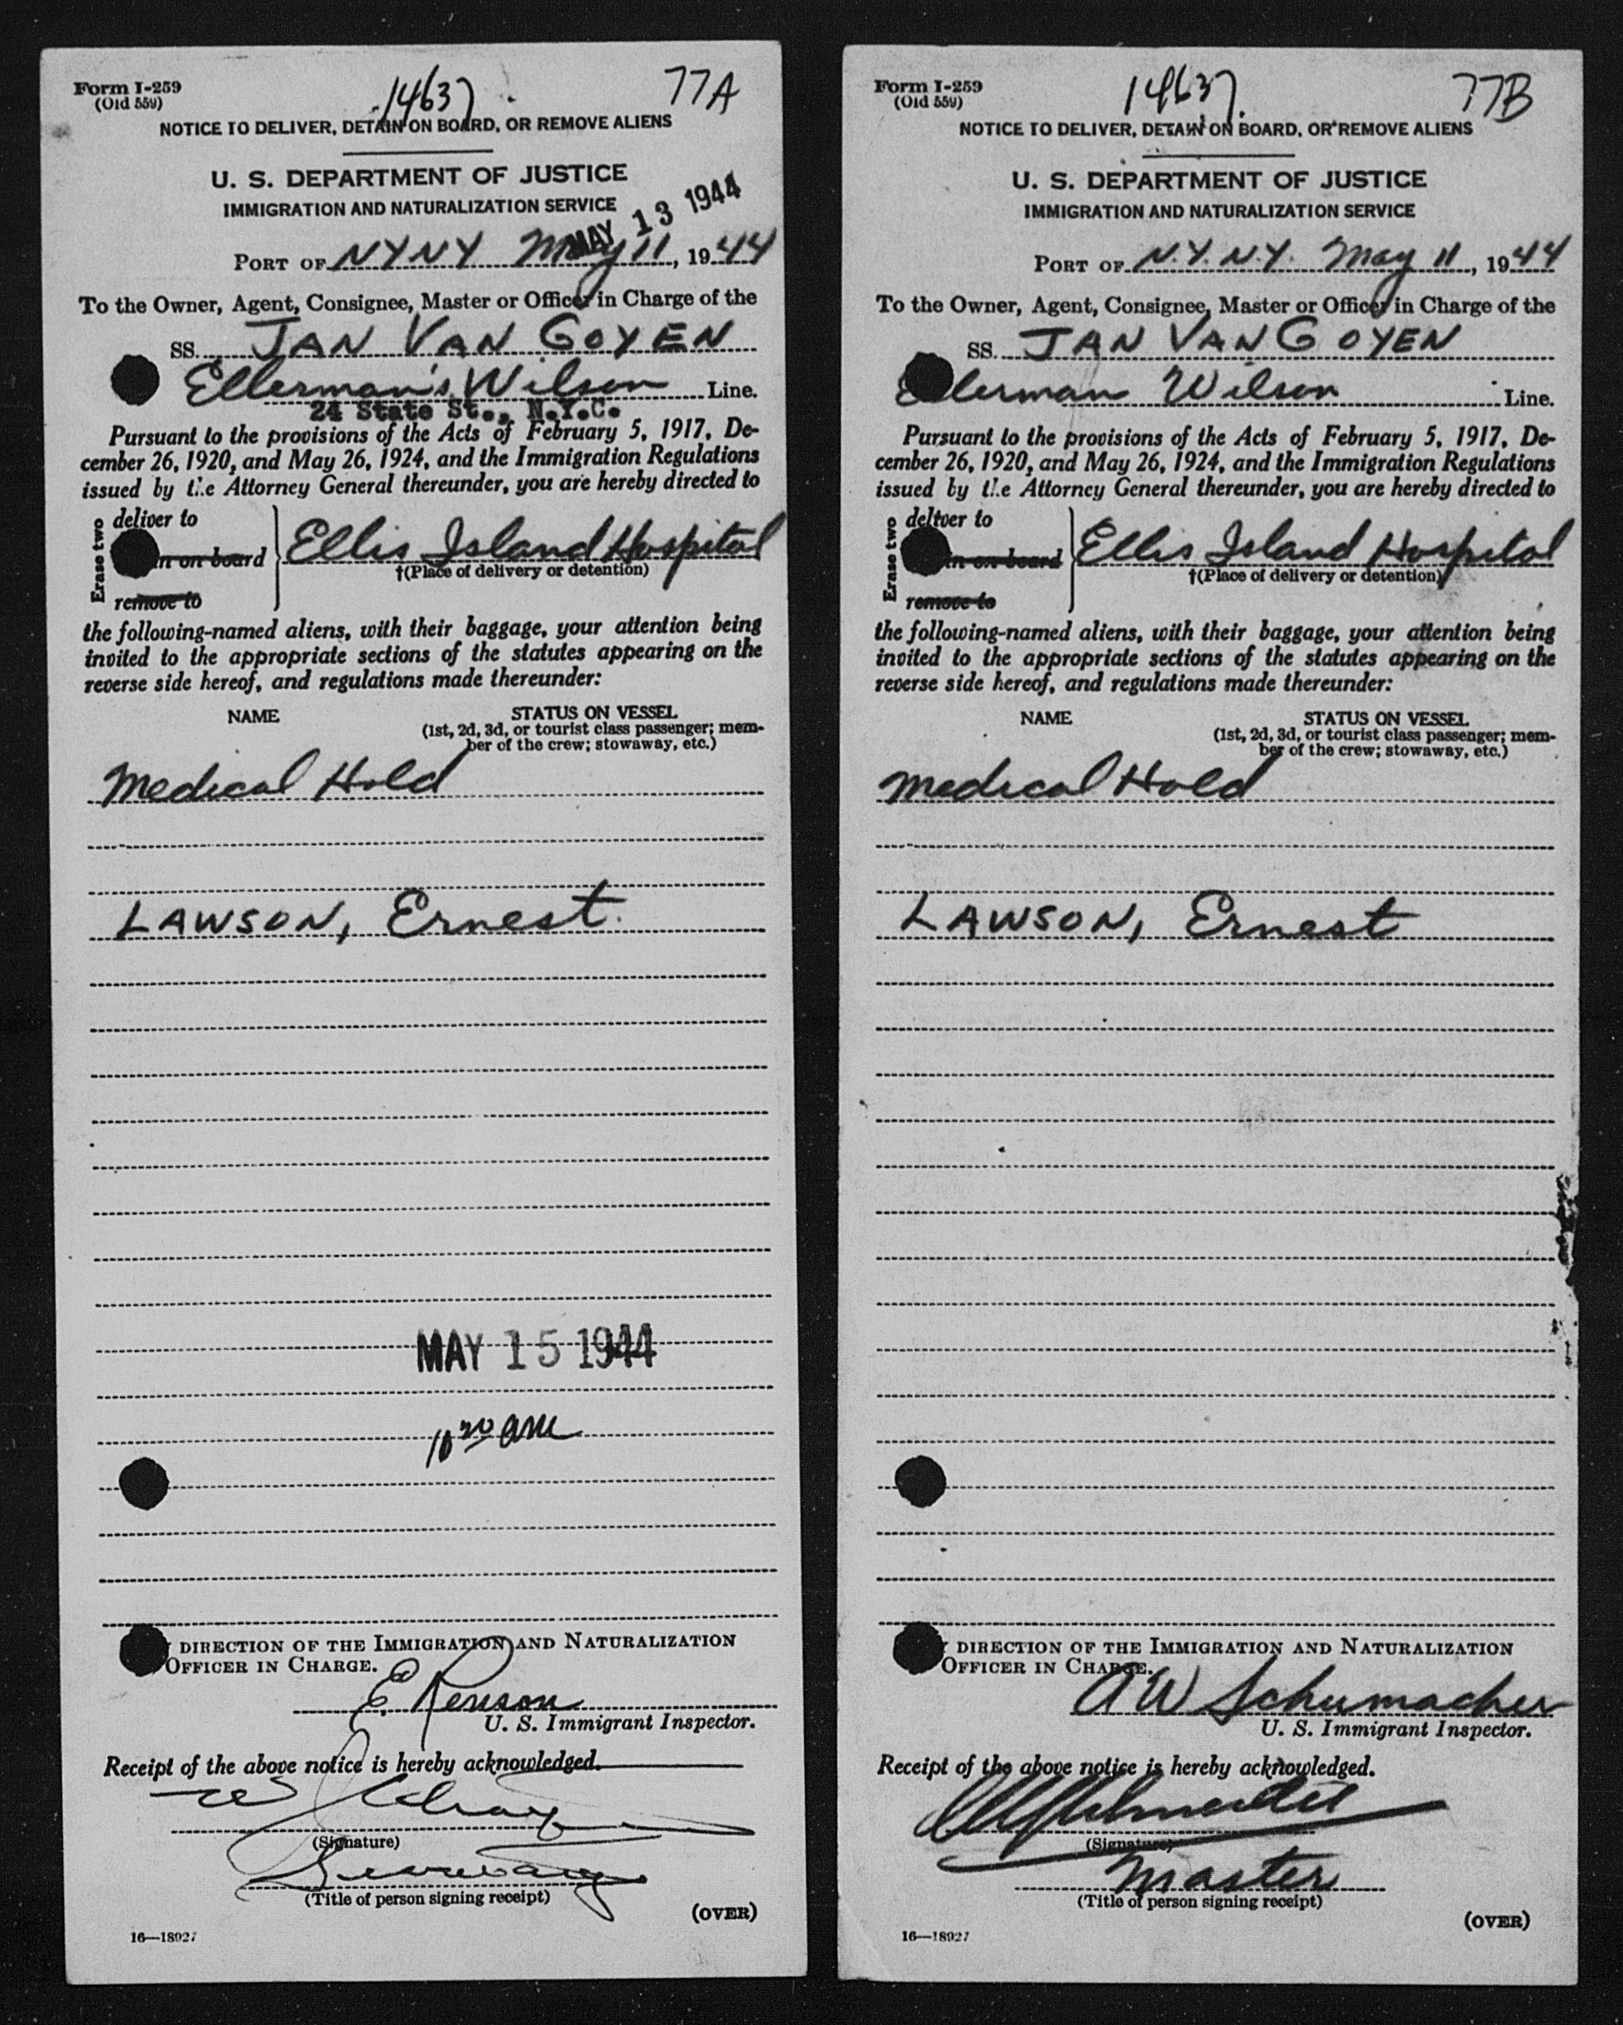 Form I-259
(Old 559)
14637
77A
NOTICE TO DELIVER, DETAIN ON BOARD, OR REMOVE ALIENS
U. S. DEPARTMENT OF JUSTICE
IMMIGRATION AND NATURALIZATION SERVICE
MAY 13 1944
PORT OF NYNY May 11, 1944
To the Owner, Agent, Consignee, Master or Officer in Charge of the
SS. JAN VAN GOYEN
Ellerman's Wilson Line.
24 State St., N.Y.C.
Pursuant to the provisions of the Acts of February 5, 1917, De-
cember 26, 1920, and May 26, 1924, and the Immigration Regulations
issued by the Attorney General thereunder, you are hereby directed to
Erase two
deliver to
in on board
remove to
Ellis Island Hospital
†(Place of delivery or detention)
the following-named aliens, with their baggage, your attention being
invited to the appropriate sections of the statutes appearing on the
reverse side hereof, and regulations made thereunder:
NAME
STATUS ON VESSEL
(1st, 2d, 3d, or tourist class passenger; mem-
ber of the crew; stowaway, etc.)
Medical Hold
LAWSON, Ernest.
MAY 15 1944
10 30 am
DIRECTION OF THE IMMIGRATION AND NATURALIZATION
OFFICER IN CHARGE.
E. Renison
U. S. Immigrant Inspector.
Receipt of the above notice is hereby acknowledged.
(Signature)
(Title of person signing receipt)
(OVER)
16—18927
Form I-259
(Old 559)
14637.
77B
NOTICE TO DELIVER, DETAIN ON BOARD, OR REMOVE ALIENS
U. S. DEPARTMENT OF JUSTICE
IMMIGRATION AND NATURALIZATION SERVICE
PORT OF N.Y. N.Y. May 11, 1944
To the Owner, Agent, Consignee, Master or Officer in Charge of the
SS. JAN VAN GOYEN
Ellerman Wilson Line.
Pursuant to the provisions of the Acts of February 5, 1917, De-
cember 26, 1920, and May 26, 1924, and the Immigration Regulations
issued by the Attorney General thereunder, you are hereby directed to
Erase two
deliver to
in on board
remove to
Ellis Island Hospital
†(Place of delivery or detention)
the following-named aliens, with their baggage, your attention being
invited to the appropriate sections of the statutes appearing on the
reverse side hereof, and regulations made thereunder:
NAME
STATUS ON VESSEL
(1st, 2d, 3d, or tourist class passenger; mem-
ber of the crew; stowaway, etc.)
Medical Hold
LAWSON, Ernest
DIRECTION OF THE IMMIGRATION AND NATURALIZATION
OFFICER IN CHARGE.
A W Schumacher
U. S. Immigrant Inspector.
Receipt of the above notice is hereby acknowledged.
(Signature)
Master
(Title of person signing receipt)
(OVER)
16—18927